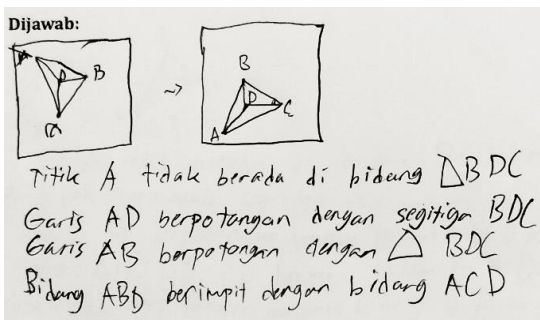 Dijawab:
A
D
B
C
→
B
D
C
A
Titik A tidak berada di bidang △BDC
Garis AD berpotongan dengan segitiga BDC
Garis AB berpotongan dengan △ BDC
Bidang ABD berimpit dengan bidang ACD